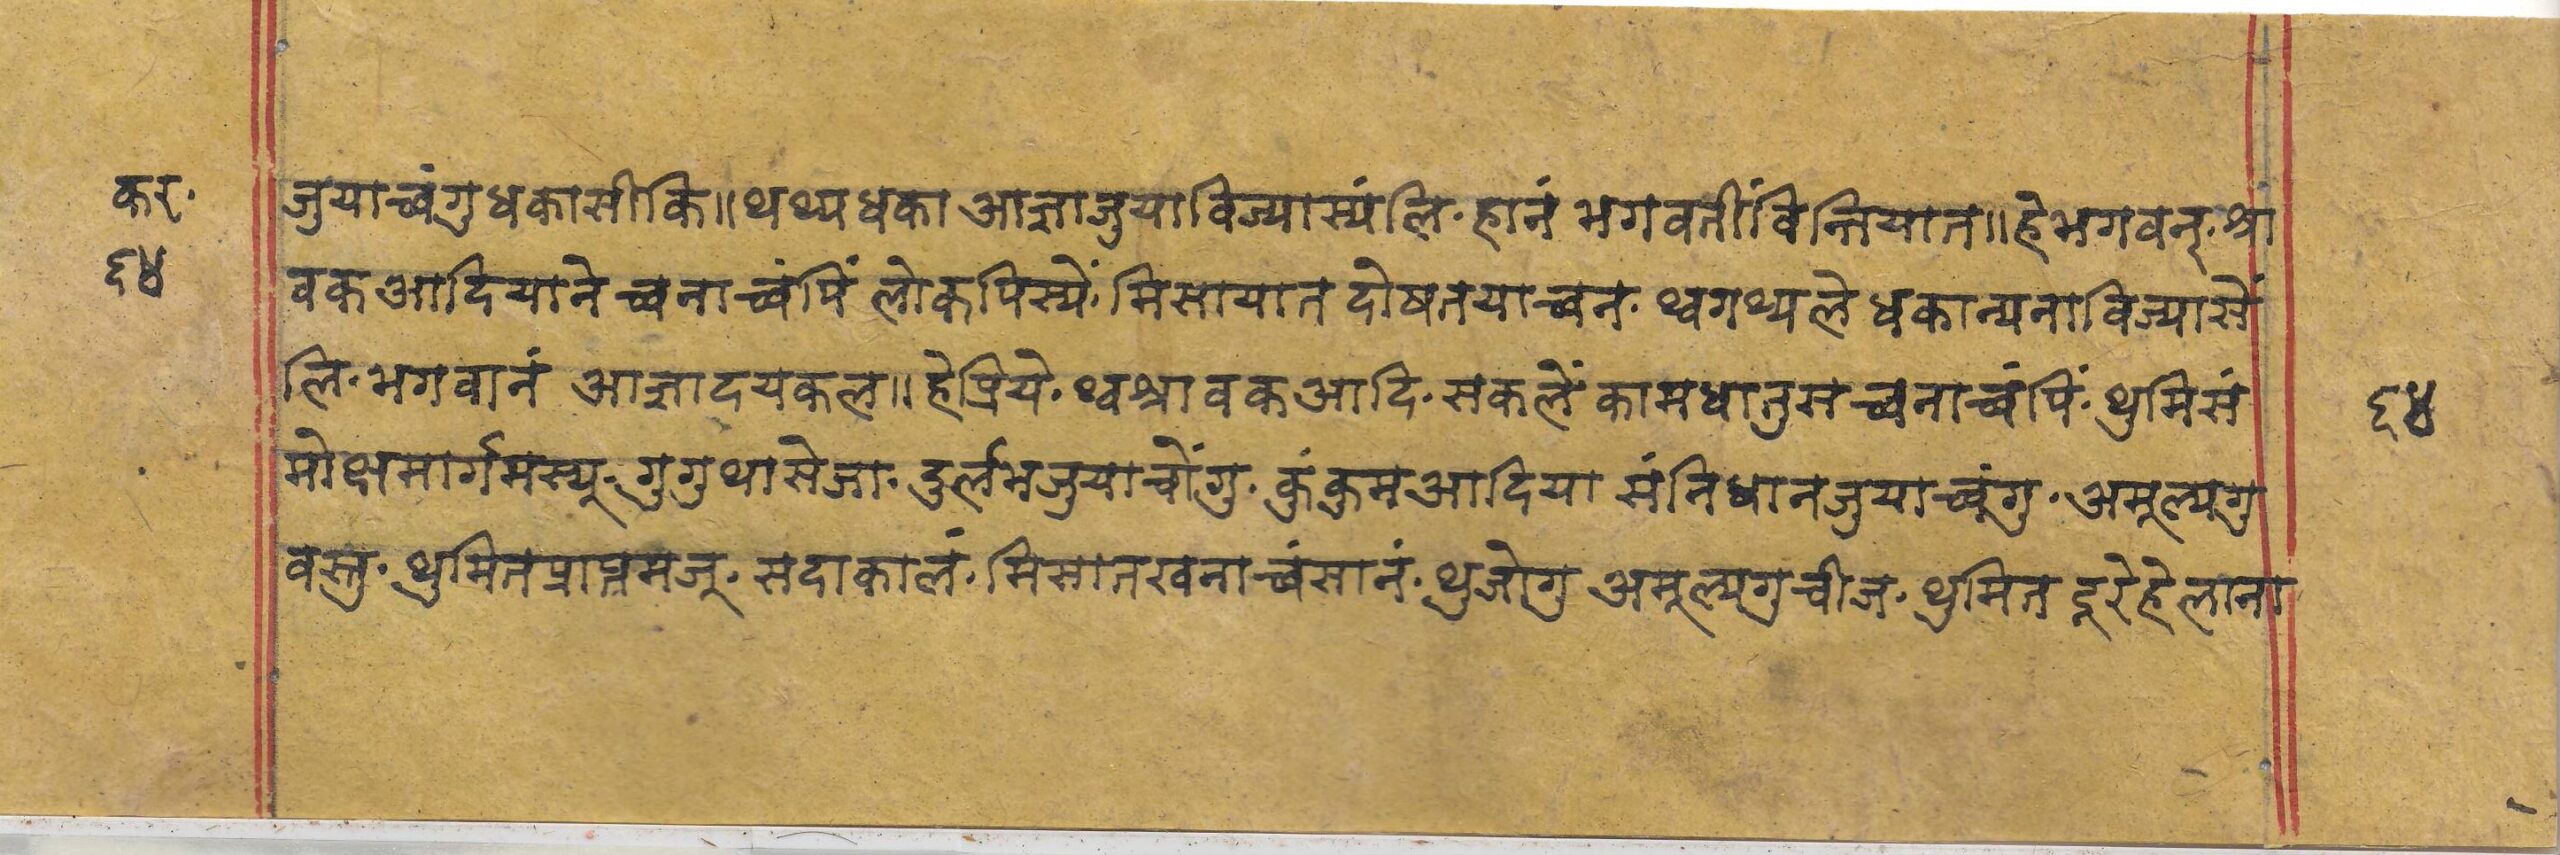 कर· जुयाच्वंगु धकासीकि॥थथ्यधका आज्ञाजुयाविज्यास्यंलि·हानं भगवतीं विन्तियात॥हेभगवन्·श्रा
६४ वकआदियाने च्वनाच्वंपिं लोकपिस्यें·मिसायात दोषतयाच्वन·थ्वगथ्यले धकान्यनाविज्यासें
लि·भगवानं आज्ञादयकल॥हेप्रिये·थ्वश्रावकआदि·सकलें कामधातुस च्वनाच्वंपिं·थुमिसं ६४
मोक्षमार्गमस्यू·गुगुथासेजा·दुर्लभजुयाचोंगु·कुंकुमआदिया संनिधानजुयाच्वंगु·अमूल्यगु
वस्तु·थुमितप्राप्तमजू·सदाकालं·मिसातखनाच्वंसानं·थुजोगु अमूल्यगुचीज·थुमित दूरेहेलाना